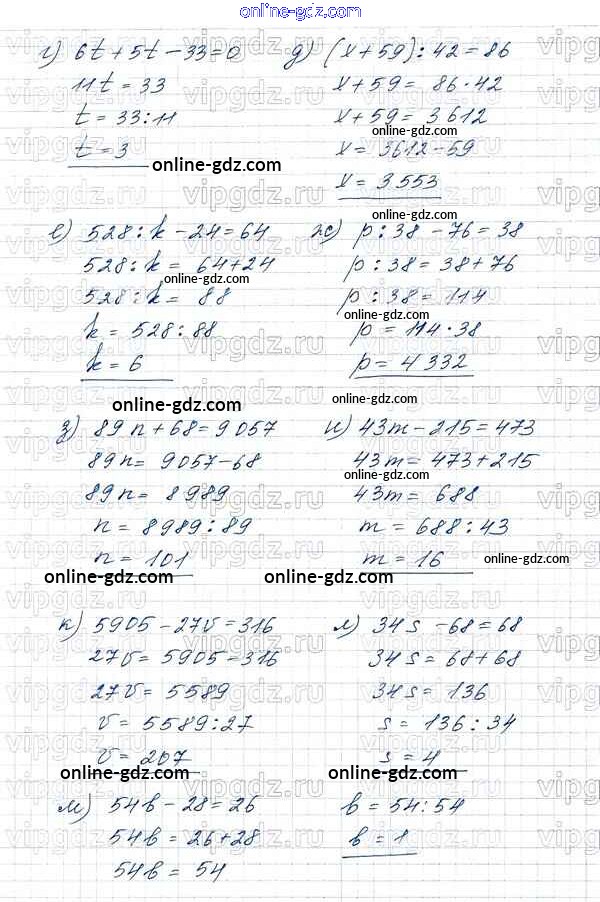 online-gdz.com
г) 6t + 5t - 33 = 0
11t = 33
t = 33 : 11
t = 3
online-gdz.com
д) (x + 59) : 42 = 86
x + 59 = 86 · 42
x + 59 = 3612
online-gdz.com
x = 3612 - 59
x = 3553
е) 528 : k - 24 = 64
528 : k = 64 + 24
online-gdz.com
528 : k = 88
k = 528 : 88
k = 6
online-gdz.com
ж) p : 38 - 76 = 38
p : 38 = 38 + 76
online-gdz.com
p : 38 = 114
online-gdz.com
p = 114 · 38
p = 4332
з) 89n + 68 = 9057
89n = 9057 - 68
89n = 8989
n = 8989 : 89
n = 101
online-gdz.com
и) 43m - 215 = 473
43m = 473 + 215
online-gdz.com
43m = 688
m = 688 : 43
m = 16
online-gdz.com
online-gdz.com
к) 5905 - 27v = 316
27v = 5905 = 316
27v = 5589
v = 5589 : 27
v = 207
online-gdz.com
л) 34s - 68 = 68
34s = 68 + 68
34s = 136
s = 136 : 34
s = 4
online-gdz.com
м) 54b - 28 = 26
54b = 26 + 28
54b = 54
b = 54 : 54
b = 1
vipgdz.ru